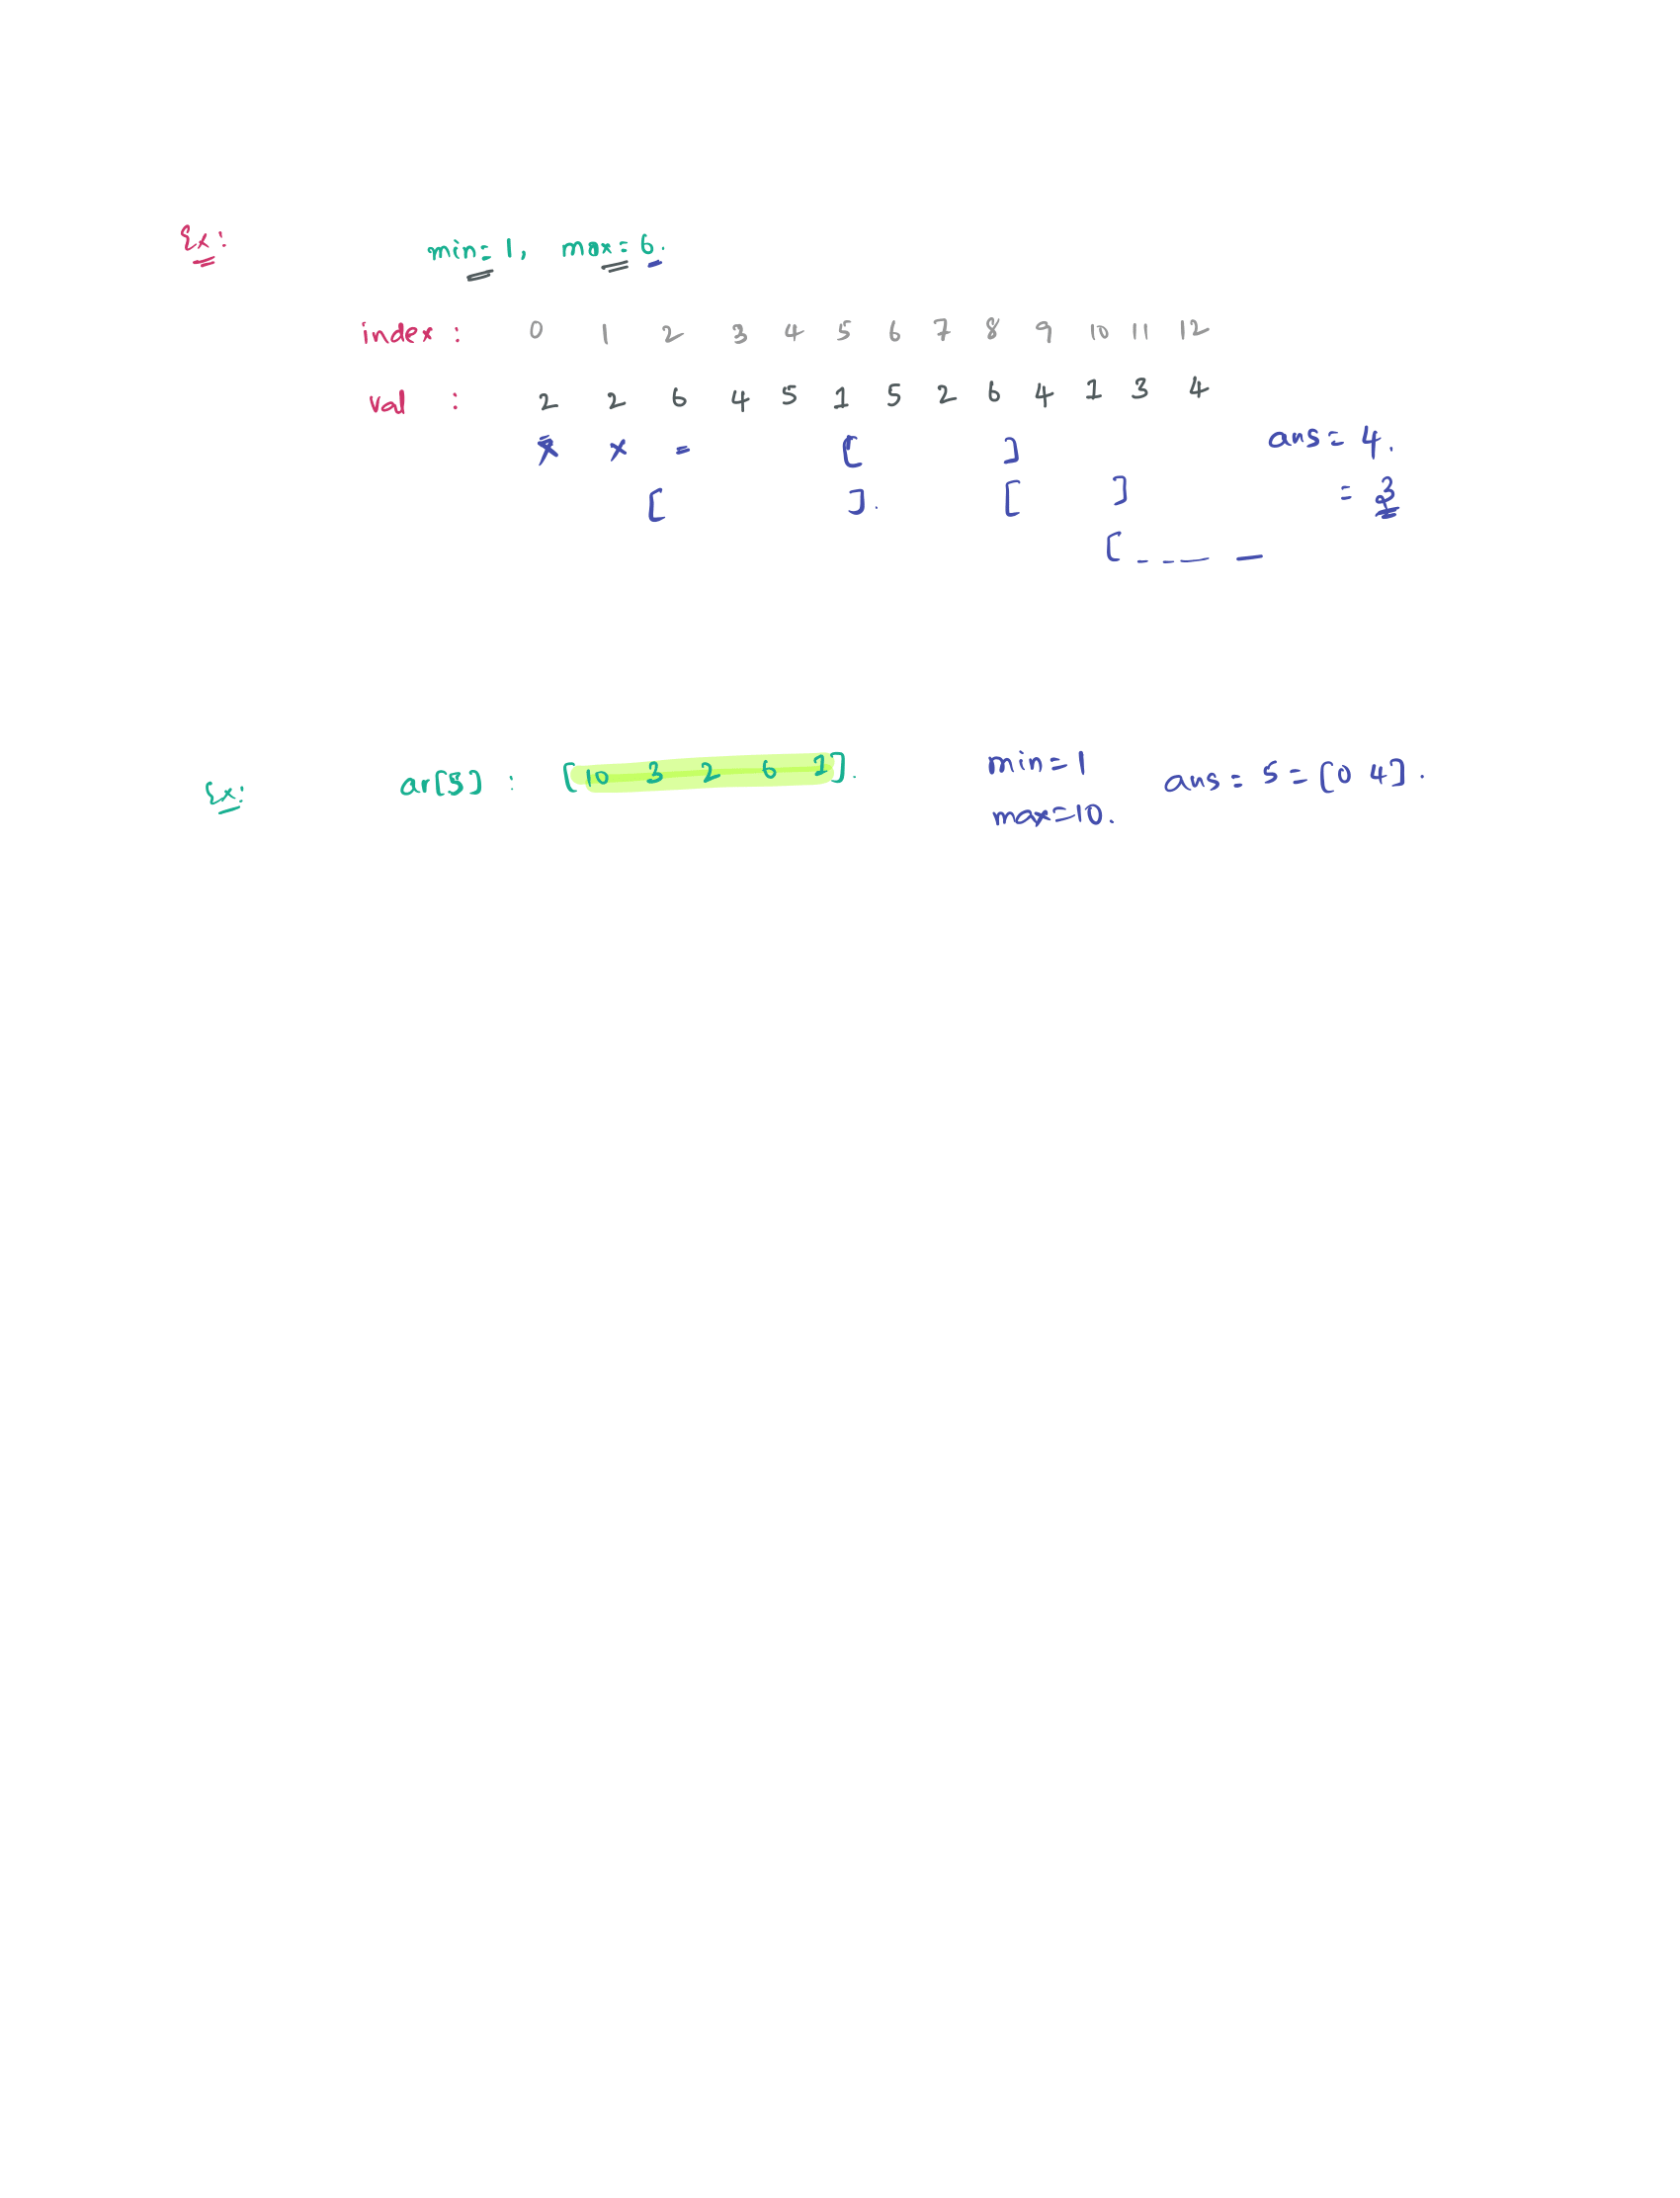 Ex:
min = 1, max = 6.
index : 0 1 2 3 4 5 6 7 8 9 10 11 12
val : 2 2 6 4 5 1 5 2 6 4 1 3 4
x x = [ ] ans = 4.
[ ]. [ ] = 3
[ - - — —
Ex: ar[5] : [10 3 2 6 1]. min = 1 ans = 5 = [0 4].
max = 10.